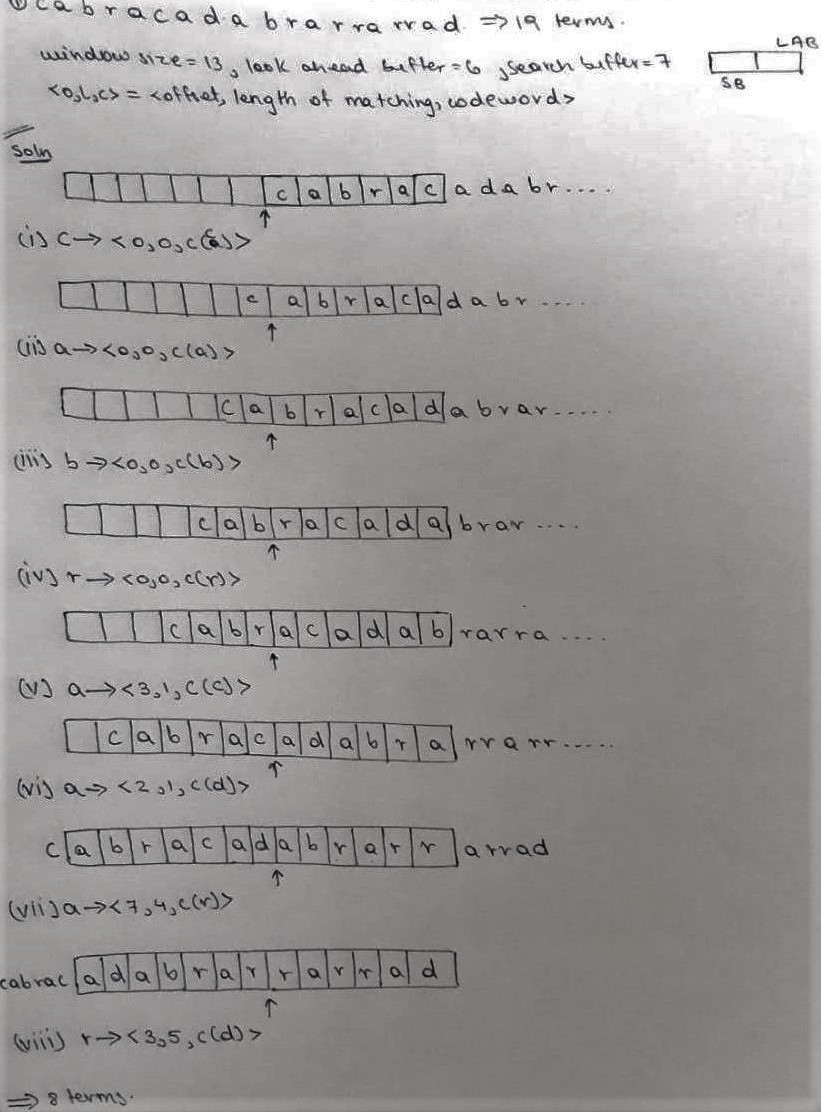 ① c a b r a c a d a b r a r r a r r a d. ⇒ 19 terms.
window size = 13, look ahead buffer = 6, search buffer = 7
LAB
SB
<o,l,c> = <offset, length of matching, codeword>
Soln
c a b r a c a d a b r....
(i) c → <0,0,c(c)>
c a b r a c a d a b r ....
(ii) a → <0,0,c(a)>
c a b r a c a d a b r a r .....
(iii) b → <0,0,c(b)>
c a b r a c a d a b r a r ....
(iv) r → <0,0,c(r)>
c a b r a c a d a b r a r r a ....
(v) a → <3,1,c(c)>
c a b r a c a d a b r a r r a r r .....
(vi) a → <2,1,c(d)>
c a b r a c a d a b r a r r a r r a d
(vii) a → <7,4,c(r)>
cabrac a d a b r a r r a r r a d
(viii) r → <3,5,c(d)>
⇒ 8 terms.